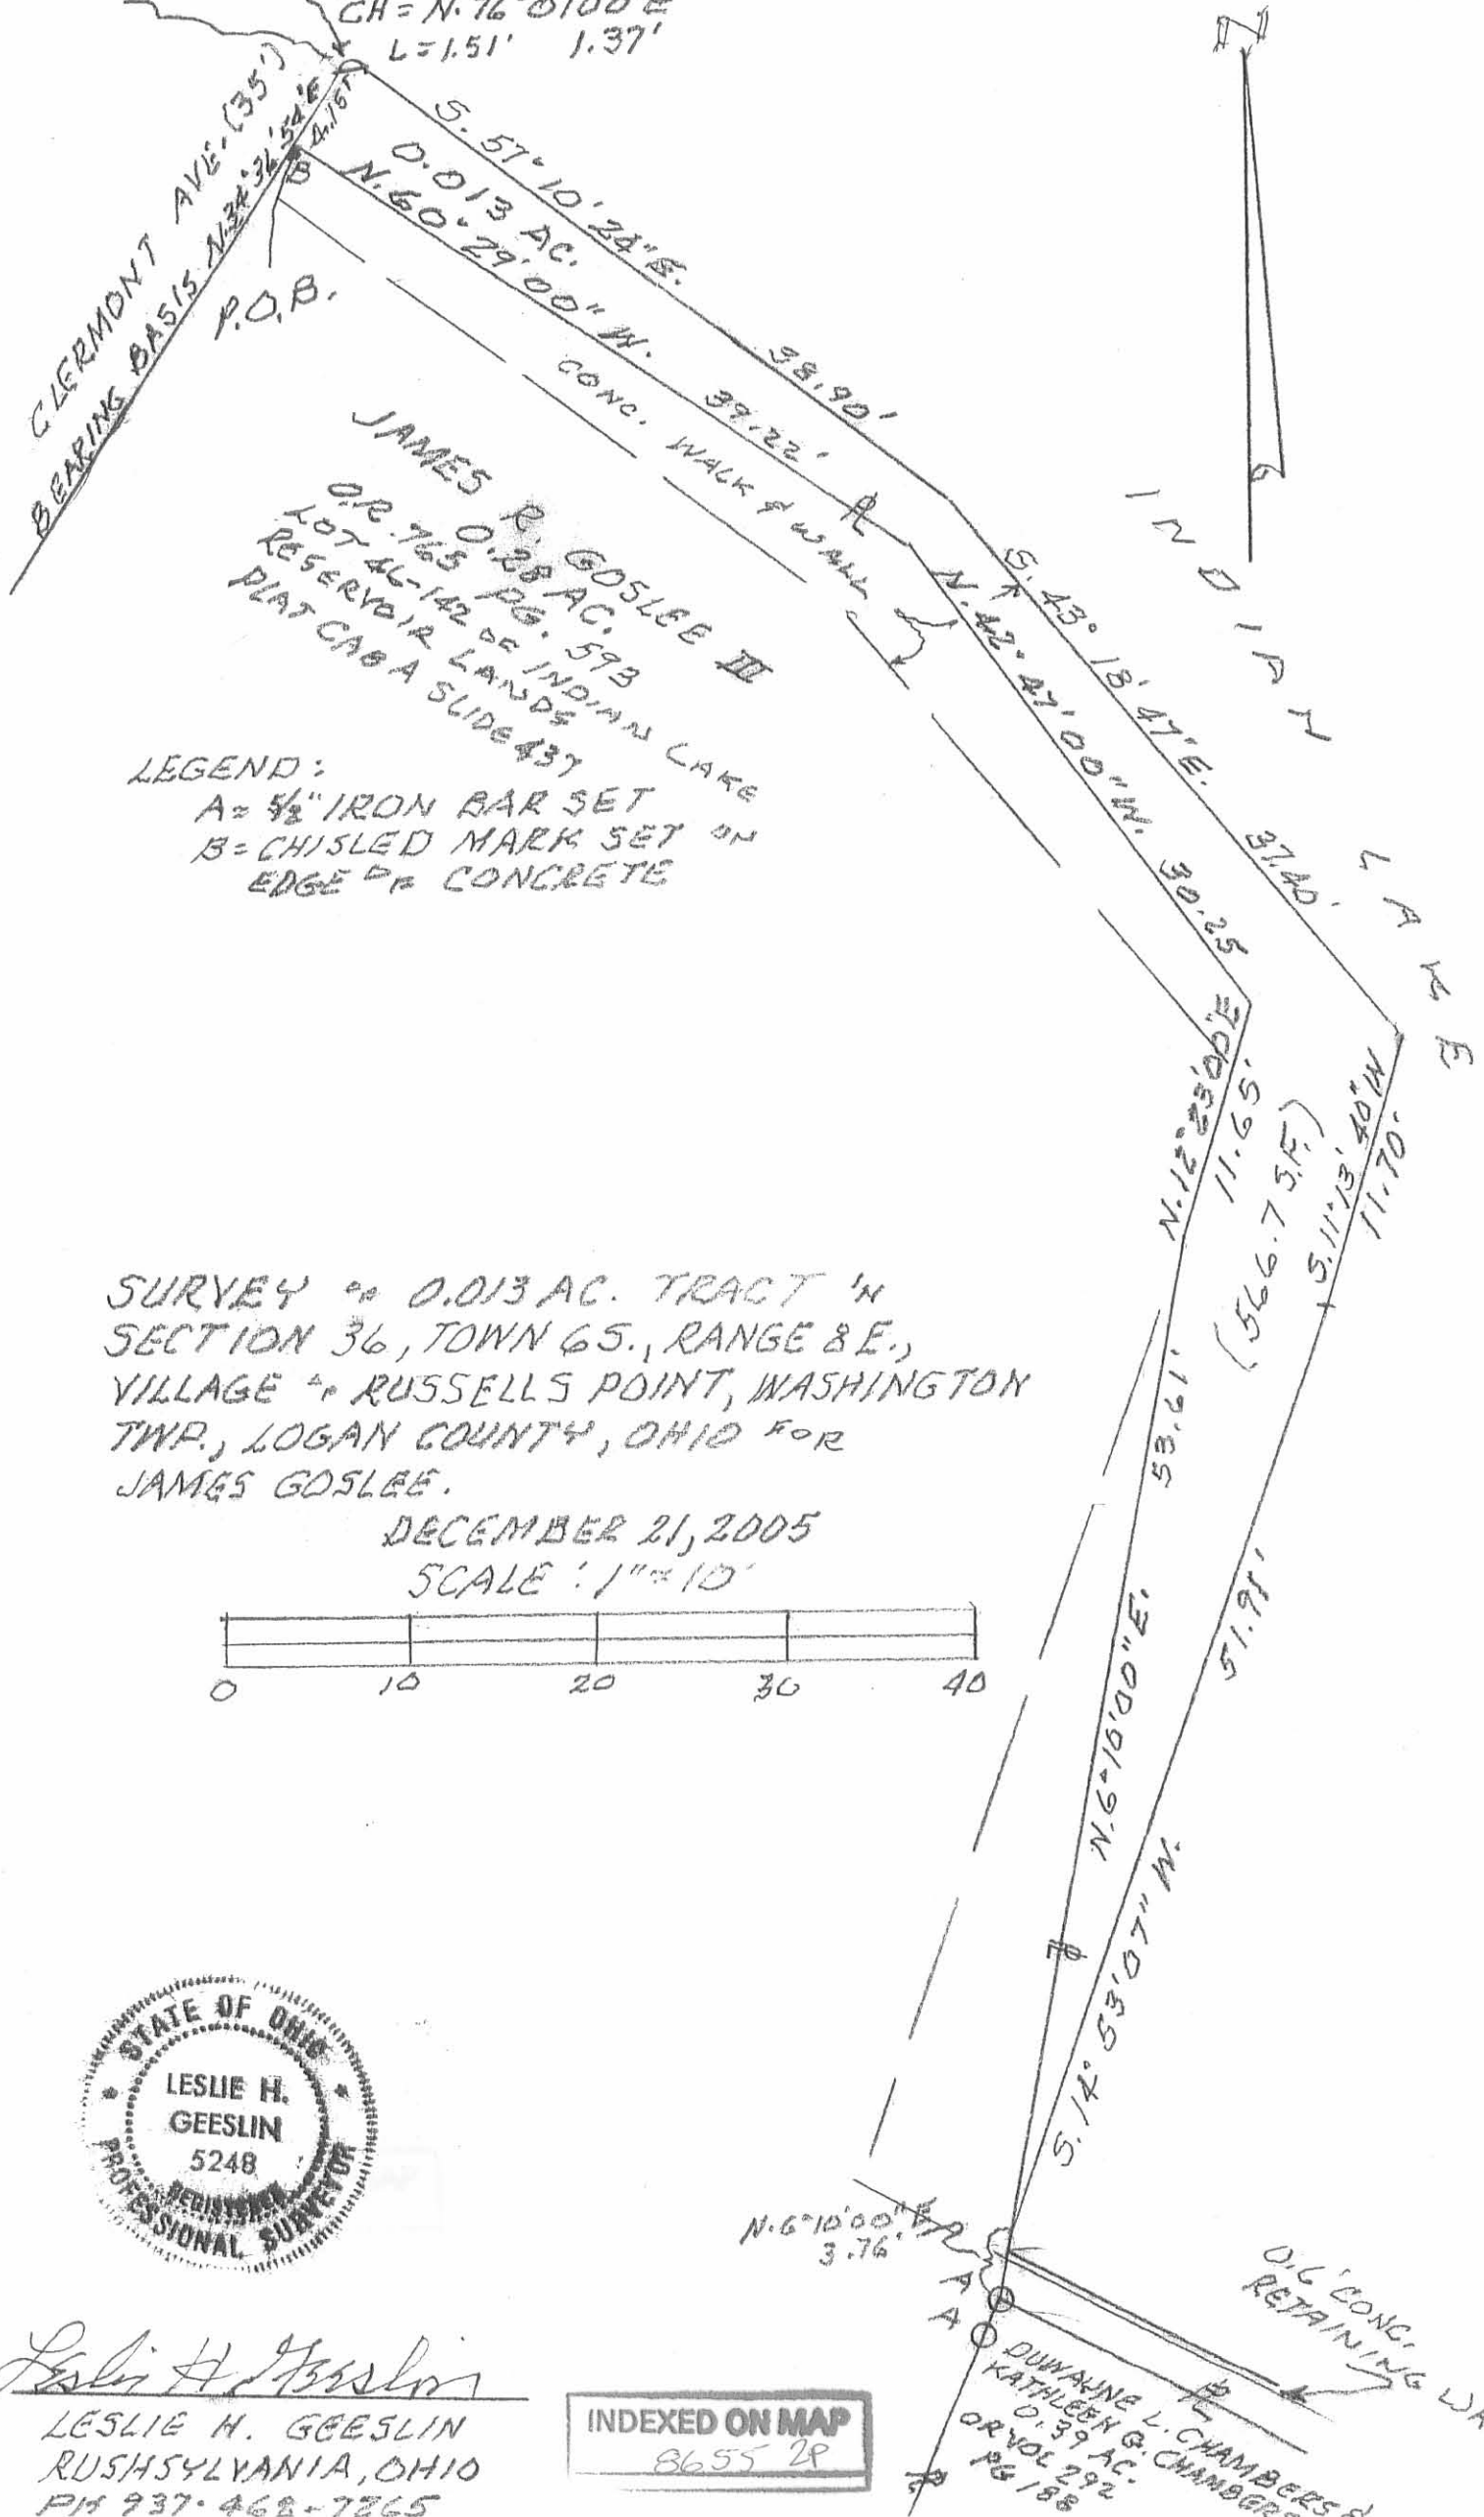 CH = N. 76°01'00"E
L = 1.51' 1.37'
CLERMONT AVE. (35')
BEARING BASIS N.34°36'54"E
4.15'
B
P.O.B.
S. 57° 10' 24" E. 38.90'
0.013 AC.
N. 60° 29' 00" W. 39.22'
CONC. WALK & WALL
JAMES R. GOSLEE III
0.28 AC.
O.R. 765 PG. 593
LOT 46-142 OF INDIAN LAKE
RESERVOIR LANDS
PLAT CAB A SLIDE 437
INDIAN LAKE
S. 43° 18' 47" E. 37.40'
N. 42° 47' 00" W. 30.25
LEGEND:
A = 5/8" IRON BAR SET
B = CHISLED MARK SET ON
EDGE OF CONCRETE
N. 12° 23' 00" E
11.65'
(566.7 S.F.)
S. 11° 13' 40" W
11.70'
SURVEY OF 0.013 AC. TRACT IN
SECTION 36, TOWN 6S., RANGE 8E.,
VILLAGE OF RUSSELLS POINT, WASHINGTON
TWP., LOGAN COUNTY, OHIO FOR
JAMES GOSLEE.
DECEMBER 21, 2005
SCALE: 1"=10'
0 10 20 30 40
N. 6° 10' 00" E. 53.61'
S. 14° 53' 07" W. 51.98'
STATE OF OHIO
LESLIE H.
GEESLIN
5248
REGISTERED
PROFESSIONAL SURVEYOR
N. 6° 10' 00" E
3.76'
A
A
0.6' CONC.
RETAINING
DUWAYNE L. CHAMBERS &
KATHLEEN G. CHAMBERS
0.39 AC.
OR VOL 292
PG 188
Leslie H. Geeslin
LESLIE H. GEESLIN
RUSHSYLVANIA, OHIO
PH 937-468-7265
INDEXED ON MAP
8655 2P